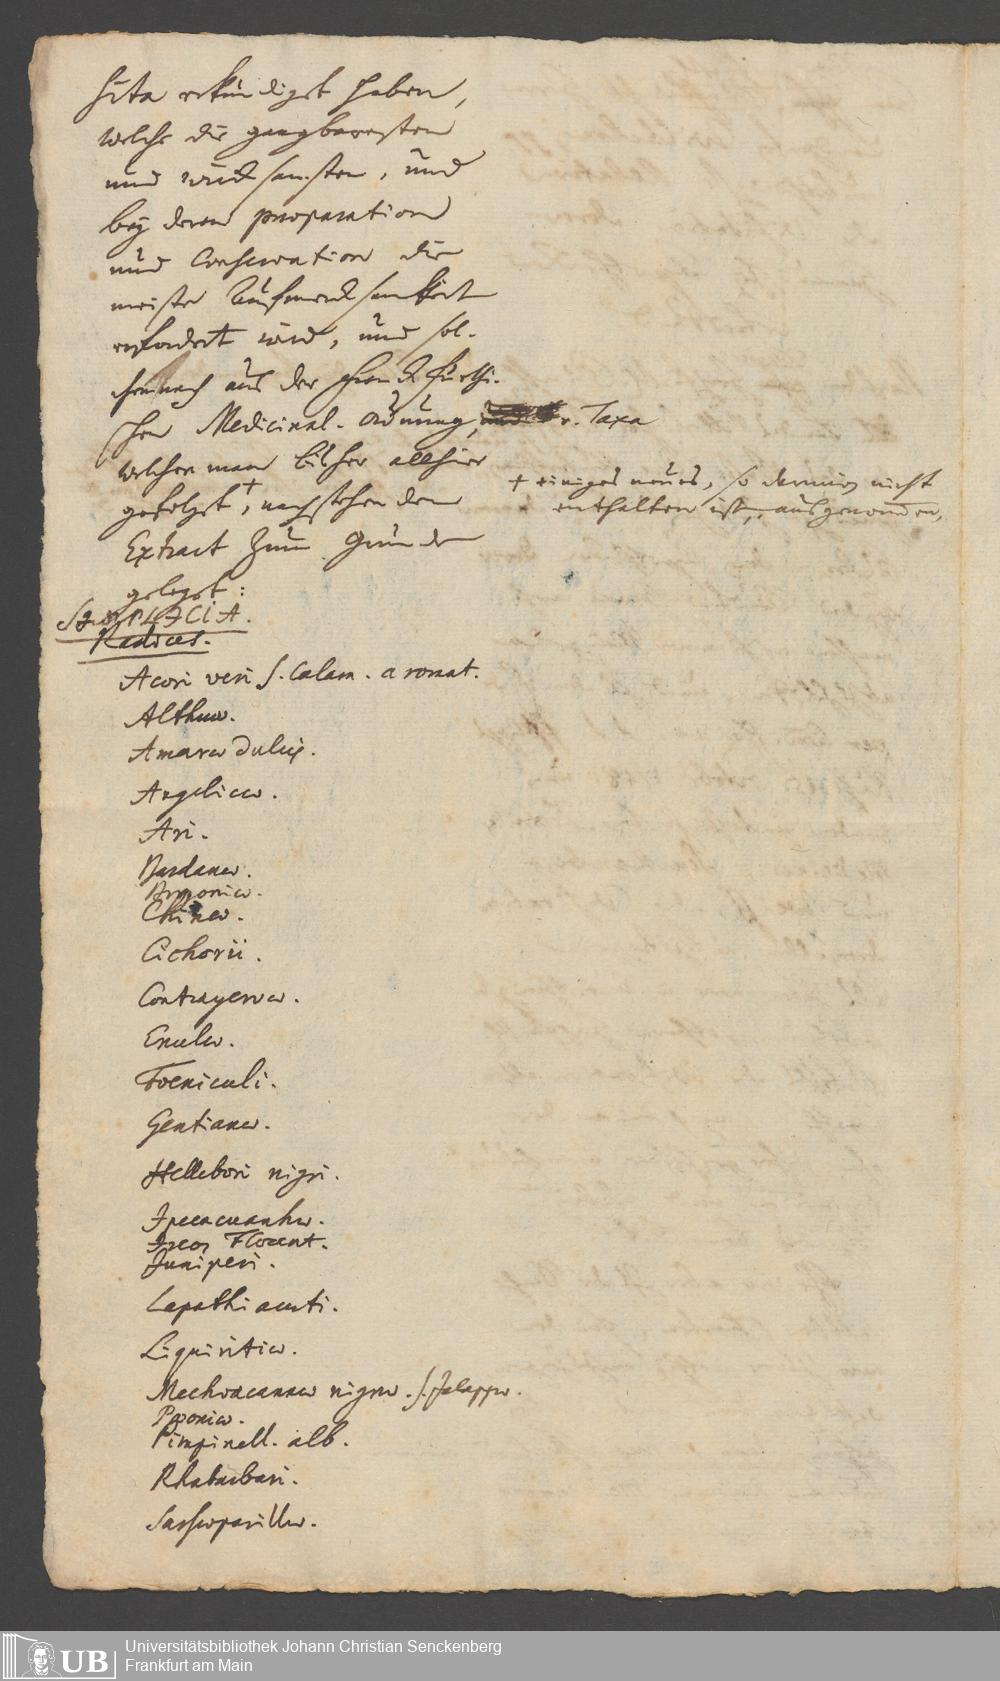 heüte erkündiget haben,
welche die gangbaresten
und würcksamsten, und
beÿ deren præparation
und Conservation die
meiste Aufmercksamkeit
erfordert wird, und sol-
chemnach aus der Franckfurthi-
schen Medicinal-Ordnung, u. Taxa
welcher man bisher allhier
gefolget +, nachstehenden
+ einiges neues, so darinn nicht
enthalten ist, ausgenommen,
Extract zum Grunde
geleget:
SIMPLICIA.
Radices.
Acori veri s. Calam. aromat.
Althææ.
Amaræ dulcis.
Angelicæ.
Ari.
Bardanæ.
Bryoniæ.
Chinæ.
Cichorii.
Contrayervæ.
Enulæ.
Foeniculi.
Gentianæ.
Hellebori nigri.
Ipecacuanhæ.
Ireos Florent.
Juniperi.
Lapathi acuti.
Liquiritiæ.
Mechoacannæ nigræ. s. Jalappæ.
Pæoniæ.
Pimpinell. alb.
Rhabarbari.
Sarsaparillæ.
UB
Universitätsbibliothek Johann Christian Senckenberg
Frankfurt am Main